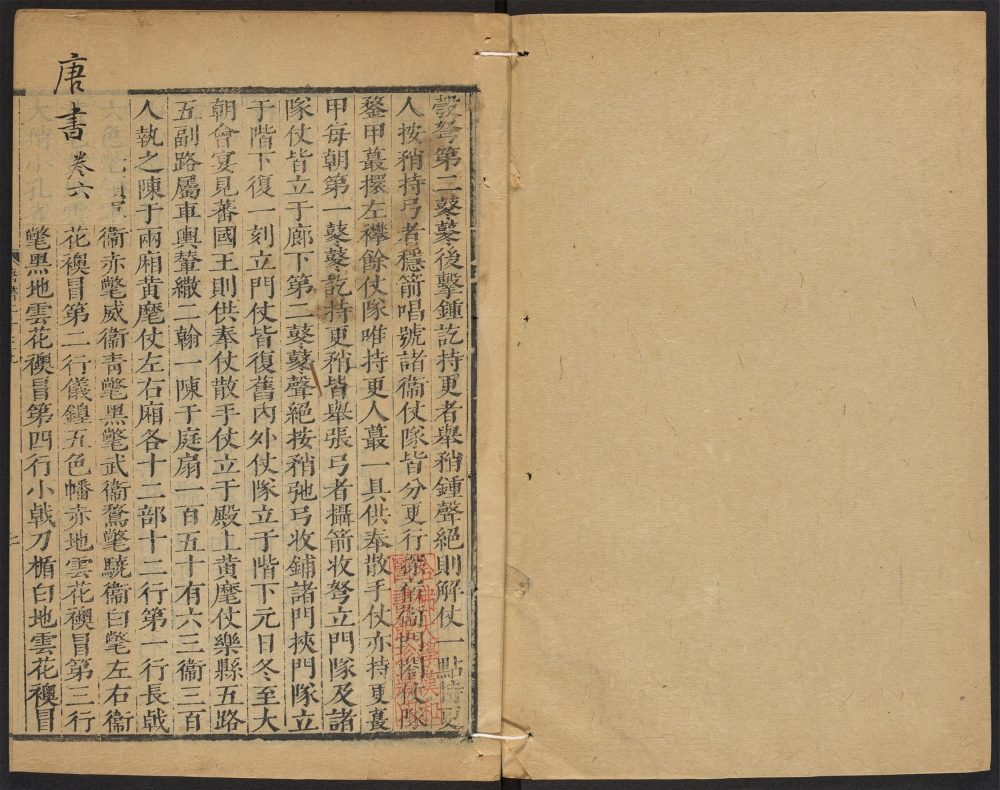 彀弩第二鼕鼕後擊鍾訖持更者舉矟鍾聲絕則解仗一點持更
人按矟持弓者穩箭唱號諸衞仗隊皆分更行
鍪甲蕞擐左襻餘仗隊唯持更人蕞一具供奉散手仗亦持更蕞
甲每朝第一鼕鼕訖持更矟皆舉張弓者攝箭收弩立門隊及諸
隊仗皆立于廊下第二鼕鼕聲絕按矟弛弓收鋪諸門挾門隊立
于階下復一刻立門仗皆復舊內外仗隊立于階下元日冬至大
朝會宴見蕃國王則供奉仗散手仗立于殿上黃麾仗樂縣五路
五副路屬車輿輦繖二翰一陳于庭扇一百五十有六三衞三百
人執之陳于兩廂黃麾仗左右廂各十二部十二行第一行長戟
衞赤氅威衞青氅黑氅武衞鶩氅驍衞白氅左右衞
花襖冒第二行儀鍠五色幡赤地雲花襖冒第三行
氅黑地雲花襖冒第四行小戟刀楯白地雲花襖冒
唐書
卷六